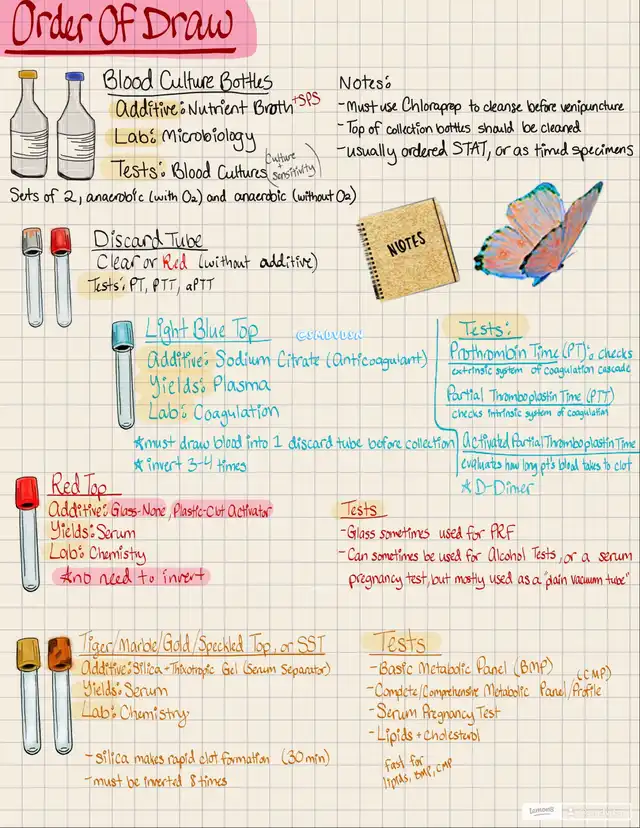 Order Of Draw
Blood Culture Bottles
Additive: Nutrient Broth +SPS
Lab: Microbiology
Tests: Blood Cultures (Culture + Sensitivity)
Sets of 2, anaerobic (with O2) and anaerobic (without O2)
Notes:
- Must use Chloraprep to cleanse before venipuncture
- Top of collection bottles should be cleaned
- usually ordered STAT, or as timed specimens
Discard Tube
Clear or Red (without additive)
Tests: PT, PTT, aPTT
NOTES
Light Blue Top
@SMDVDSN
Additive: Sodium Citrate (Anticoagulant)
Yields: Plasma
Lab: Coagulation
*must draw blood into 1 discard tube before collection
*invert 3-4 times
Tests:
Prothrombin Time (PT): checks
extrinsic system of coagulation cascade
Partial Thromboplastin Time (PTT)
checks intrinsic system of coagulation
Activated Partial Thromboplastin Time
evaluates how long pt's blood takes to clot
*D-Dimer
Red Top
Additive: Glass-None, Plastic-Clot Activator
Yields: Serum
Lab: Chemistry
*no need to invert
Tests
- Glass sometimes used for PRF
- Can sometimes be used for Alcohol Tests, or a serum
pregnancy test, but mostly used as a "plain vacuum tube"
Tiger/Marble/Gold/Speckled Top, or SST
Additive: Silica + Thixotropic Gel (Serum Separator)
Yields: Serum
Lab: Chemistry
- silica makes rapid clot formation (30 min)
- must be inverted 8 times
Tests
- Basic Metabolic Panel (BMP)
- Complete/Comprehensive Metabolic Panel/Profile (CMP)
- Serum Pregnancy Test
- Lipids + Cholesterol
fast for
lipids, BMP, CMP